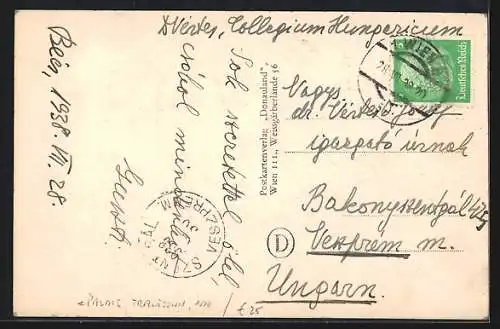 Vértes, Collegium Hungaricum
Bécs, 1938. VII. 28.
Sok szeretettel ölel,
csókol mindenkit
Postkartenverlag „Donauland“,
Wien III., Weissgärberlände 56
WIEN
Deutsches Reich
Nagys.
dr. Vértes József
igazgató úrnak
Bakonyszentlászló
Veszprém m.
Ungarn.
D
VESZPRÉM
£25